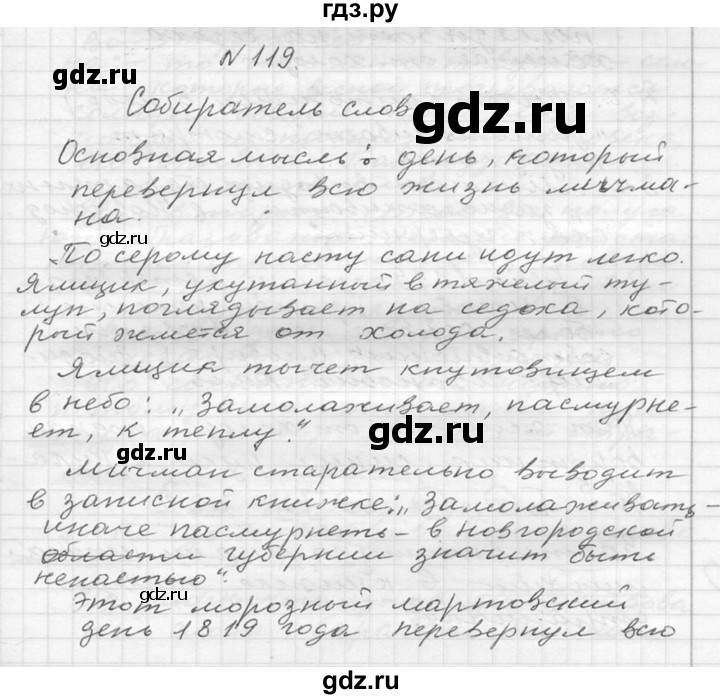 гдз.ру
N 119.
gdz.ru
gdz.ru
Собиратель слов
Основная мысль: день, который
gdz.ru
перевернул всю жизнь мичма-
на.
gdz.ru
По серому насту сани идут легко.
Ямщик, укутанный в тяжелый ту-
луп, поглядывает на седока, кото-
рый жмется от холода.
Ямщик тычет кнутовищем
в небо: „Замолаживает, пасмурне-
ет, к теплу."
gdz.ru
Мичман старательно выводит
в записной книжке: „Замолаживать -
иначе пасмурнеть - в новгородской
gdz.ru
области губернии значит быть
ненастью".
gdz.ru
Этот морозный мартовский
день 1819 года перевернул всю
gdz.ru